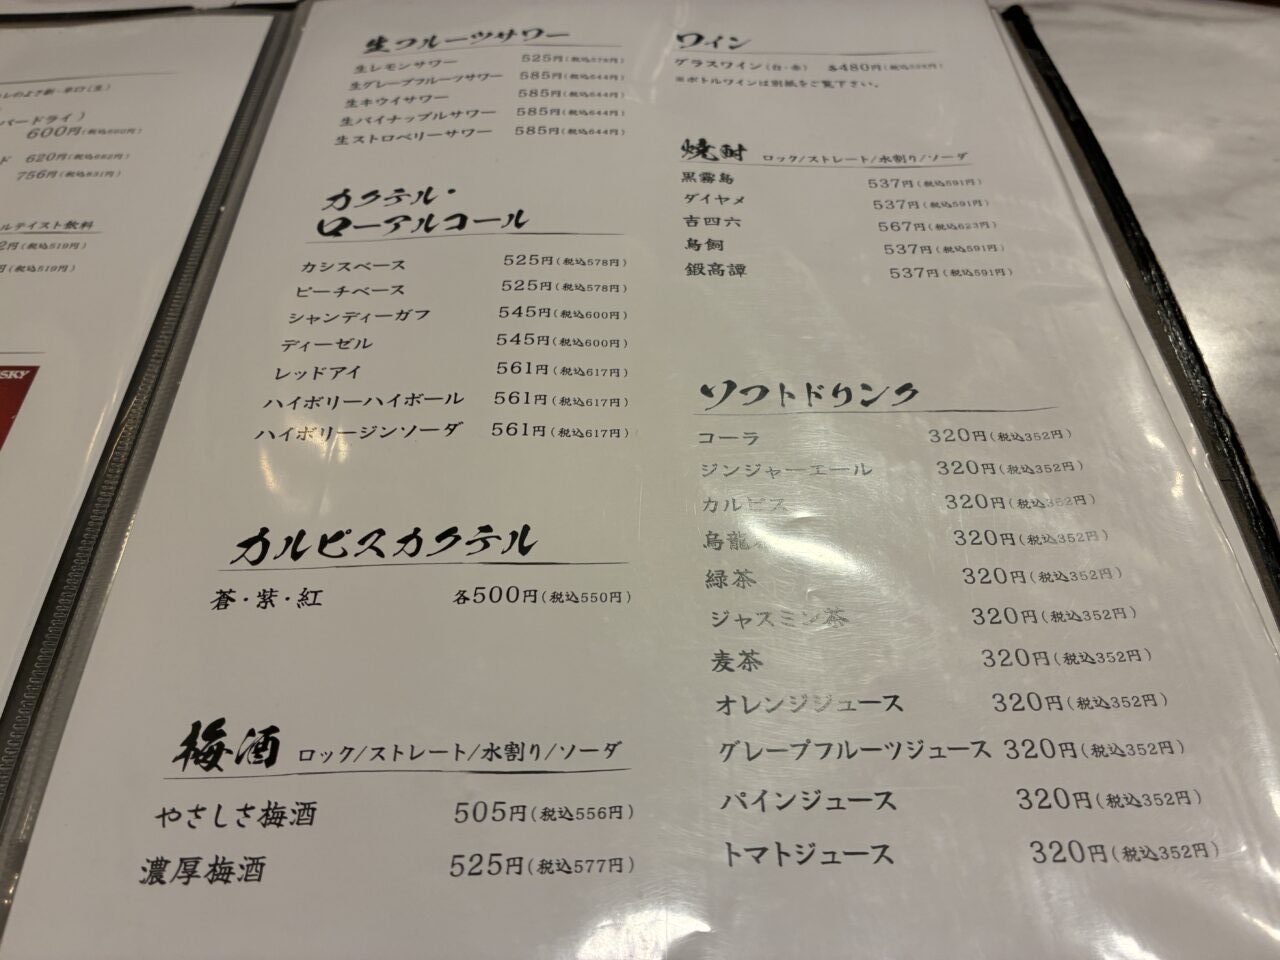 生フルーツサワー
生レモンサワー 525円(税込578円)
生グレープフルーツサワー 585円(税込644円)
生キウイサワー 585円(税込644円)
生パイナップルサワー 585円(税込644円)
生ストロベリーサワー 585円(税込644円)
カクテル・
ローアルコール
カシスベース 525円(税込578円)
ピーチベース 525円(税込578円)
シャンディーガフ 545円(税込600円)
ディーゼル 545円(税込600円)
レッドアイ 561円(税込617円)
ハイボリーハイボール 561円(税込617円)
ハイボリージンソーダ 561円(税込617円)
カルピスカクテル
蒼・紫・紅 各500円(税込550円)
梅酒 ロック/ストレート/水割り/ソーダ
やさしさ梅酒 505円(税込556円)
濃厚梅酒 525円(税込577円)
ワイン
グラスワイン(白・赤) 各480円
※ボトルワインは別紙をご覧下さい。
焼酎 ロック/ストレート/水割り/ソーダ
黒霧島 537円(税込591円)
ダイヤメ 537円(税込591円)
吉四六 567円(税込623円)
鳥飼 537円(税込591円)
鍛高譚 537円(税込591円)
ソフトドリンク
コーラ 320円(税込352円)
ジンジャーエール 320円(税込352円)
カルピス 320円(税込352円)
烏龍茶 320円(税込352円)
緑茶 320円(税込352円)
ジャスミン茶 320円(税込352円)
麦茶 320円(税込352円)
オレンジジュース 320円(税込352円)
グレープフルーツジュース 320円(税込352円)
パインジュース 320円(税込352円)
トマトジュース 320円(税込352円)
バードライ)
600円(税込660円)
ド 620円(税込682円)
756円(税込831円)
ルテイスト飲料
2円(税込519円)
円(税込519円)
SKY